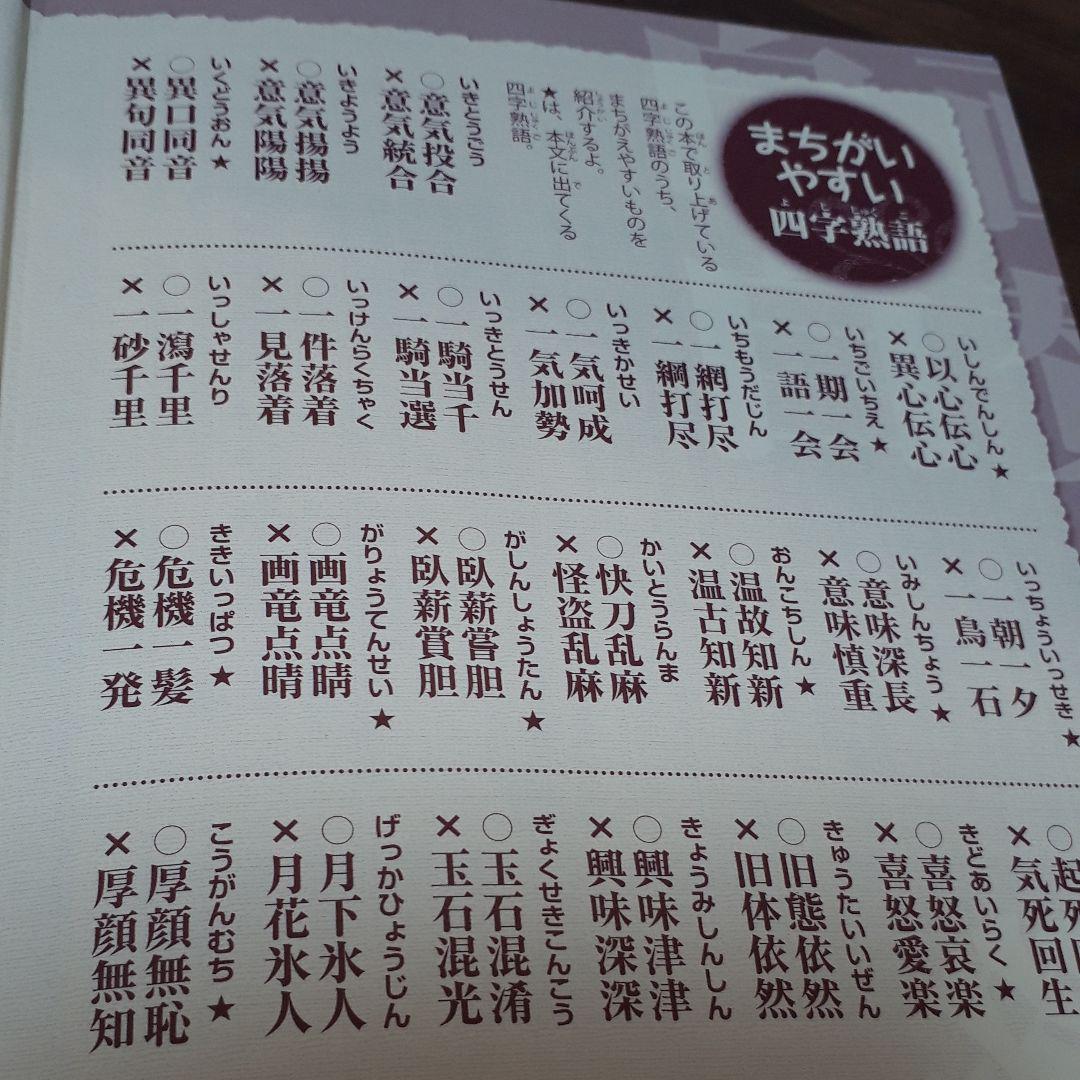 まちがい
やすい
四字熟語
この本で取り上げている
四字熟語のうち、
まちがえやすいものを
紹介するよ。
★は、本文に出てくる
四字熟語。
いきとうごう
○意気投合
×意気統合
いきようよう
○意気揚揚
×意気陽陽
いくどうおん★
○異口同音
×異句同音
いしんでんしん★
○以心伝心
×異心伝心
いちごいちえ★
○一期一会
×一語一会
いちもうだじん
○一網打尽
×一綱打尽
いっきかせい
○一気呵成
×一気加勢
いっきとうせん
○一騎当千
×一騎当選
いっけんらくちゃく
○一件落着
×一見落着
いっしゃせんり
○一瀉千里
×一砂千里
いっちょういっせき★
○一朝一夕
×一鳥一石
いみしんちょう★
○意味深長
×意味慎重
おんこちしん★
○温故知新
×温古知新
かいとうらんま
○快刀乱麻
×怪盗乱麻
がしんしょうたん★
○臥薪嘗胆
×臥薪賞胆
がりょうてんせい★
○画竜点睛
×画竜点晴
ききいっぱつ★
○危機一髪
×危機一発
○起死
×気死回生
きどあいらく★
○喜怒哀楽
×喜怒愛楽
きゅうたいいぜん
○旧態依然
×旧体依然
きょうみしんしん
○興味津津
×興味深深
ぎょくせきこんこう
○玉石混淆
×玉石混光
げっかひょうじん
○月下氷人
×月花氷人
こうがんむち★
○厚顔無恥
×厚顔無知